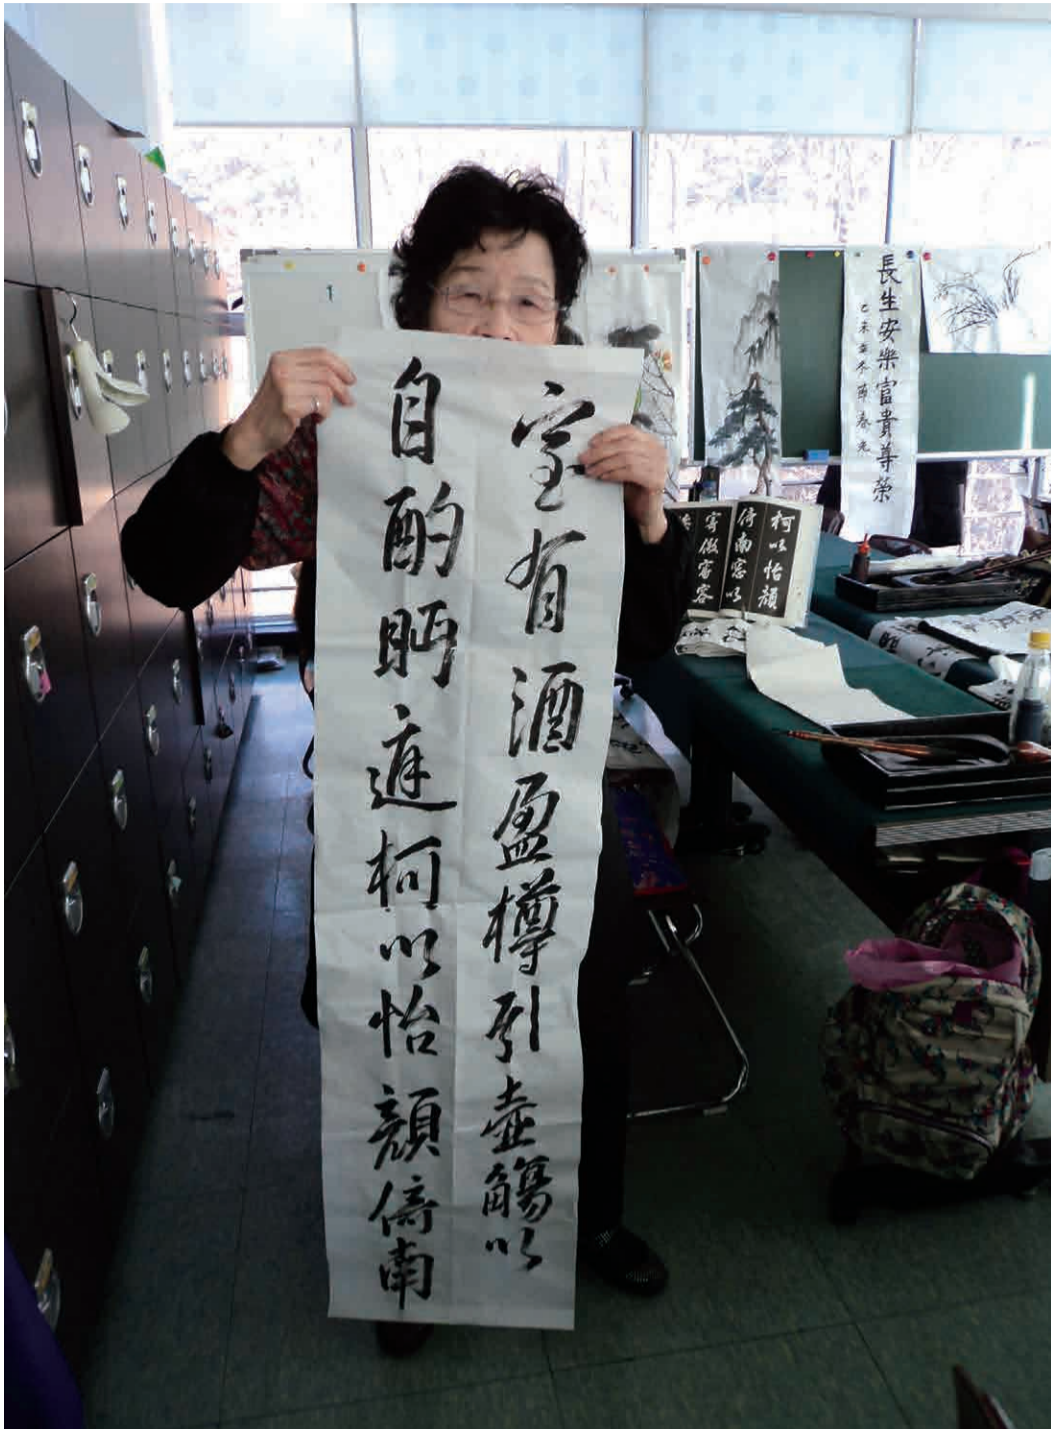 室有酒盈樽引壺觴以
自酌眄庭柯以怡顔倚南
1
長生安樂富貴尊榮
柯以怡顔
倚南窓以
寄傲審容